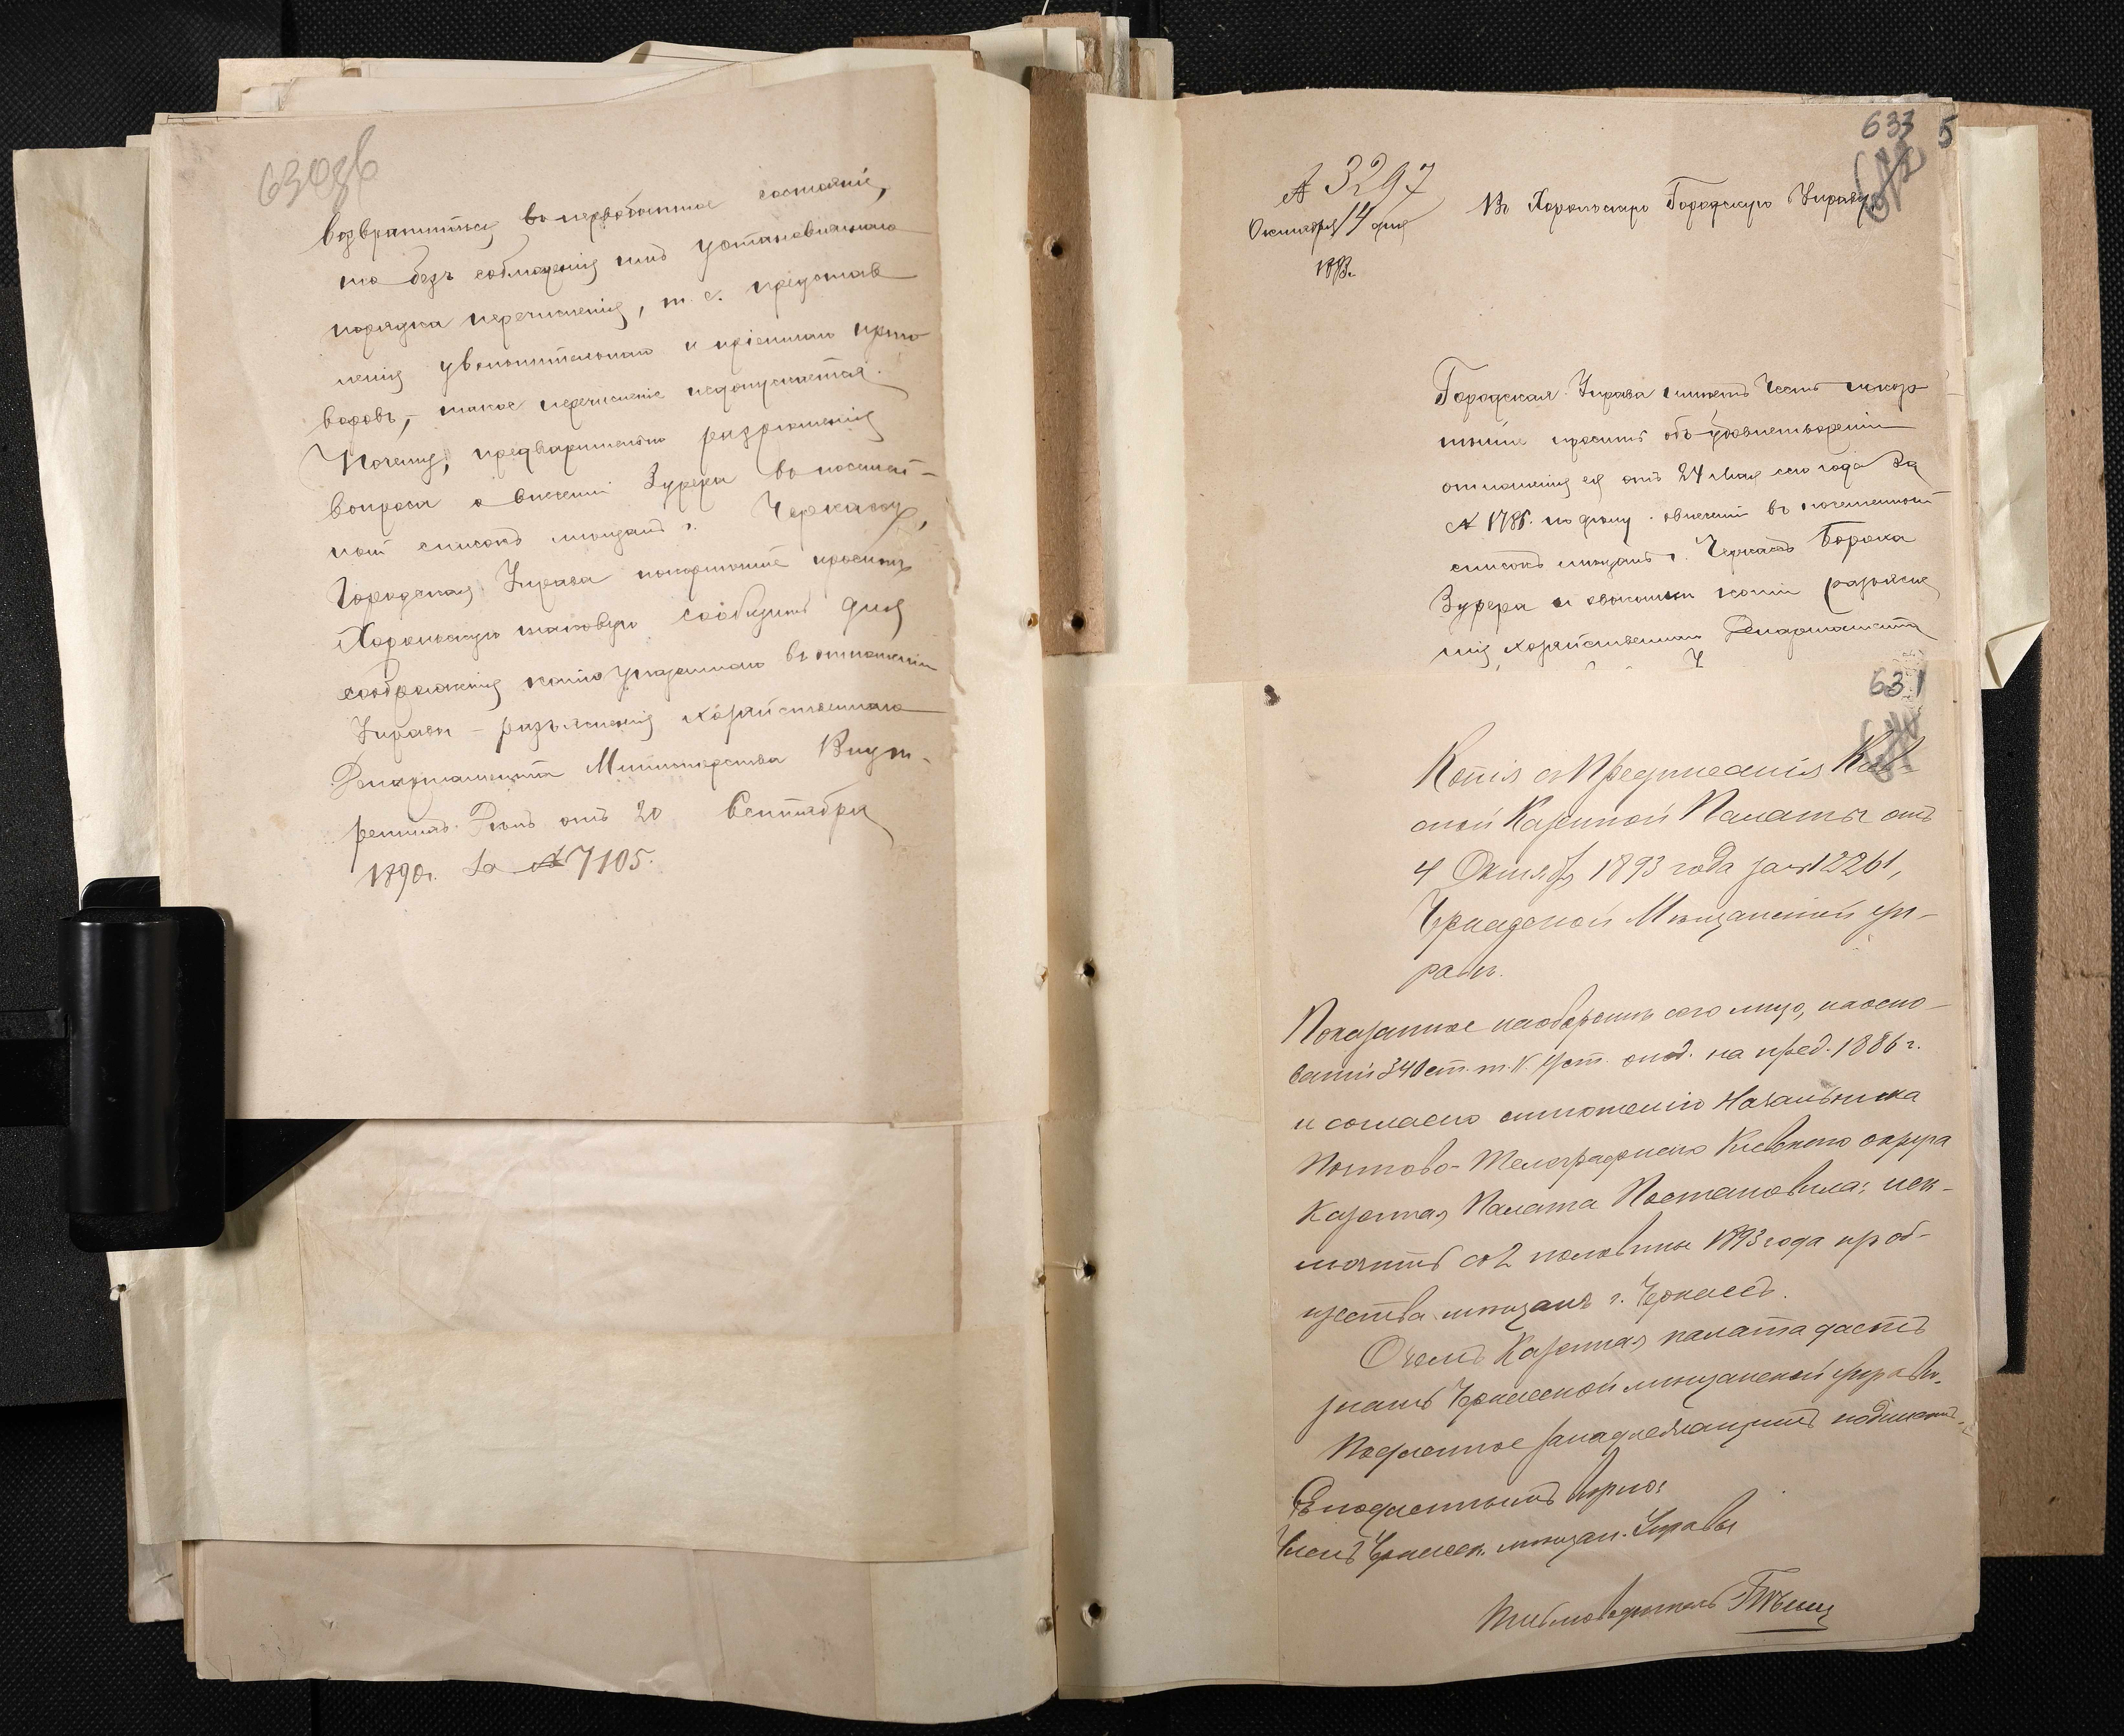 630 об
возвратиться въ первобытное состояніе,
то безъ соблюденія имъ установленнаго
порядка перечисленія, т. е. представ
ленія увольнительнаго и пріемнаго приго
воровъ, – такое перечисленіе недопускается.
Почему, предварительно разрѣшенія
вопроса о внесеніи Зурера въ посемей-
ный списокъ мѣщанъ г. Черкассъ,
Городская Управа покорнѣйше проситъ
Хорольскую таковую сообщить для
соображенія копію указаннаго въ отношеніи
Управы – разъясненія Хозяйственнаго
Департамента Министерства Внут-
реннихъ Дѣлъ отъ 20 Сентября
1890 г. За № 7105.
633 5
632
№ 3297
Октября 14 дня
1893 г.
Въ Хорольскую Городскую Управу
Городская Управа имѣетъ честь покор
нѣйше просить объ удовлетвореніи
отношенія ея отъ 24 Мая сего года за
№ 1786. по дѣлу о внесеніи въ посемейный
списокъ мѣщанъ г. Черкассъ Бороха
Зурера и о высылки копіи разъясне
нія Хозяйственнаго Департамента
631
Копія съ Предписанія Кіев-
ской Казенной Палаты отъ
4 Октября 1893 года за № 12261,
Черкасской Мѣщанской уп-
равѣ.
Показанное наоборотѣ сего лицо, наосно-
ваніи 340 ст. т. V. Уст. о под. на пред. 1886 г.
и согласно отношенію Начальника
Почтово-Телеграфнаго Кіевскаго округа
Казенная Палата Постановила: иск-
лючить со 2 половины 1893 года изъ об-
щества мѣщанъ г. Черкассъ.
О чемъ Казенная палата даетъ
знать Черкасской мѣщанской управѣ.
Подленное за надлежащимъ подписомъ.
Съ подлиннымъ вѣрно:
Членъ Черкасск. мѣщан. Управы
Письмоводитель